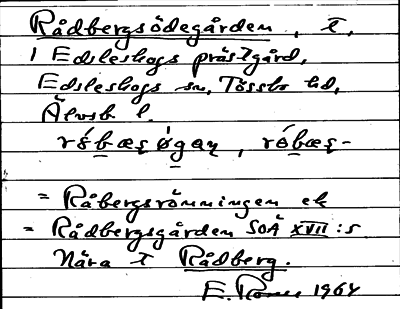 Rådbergsödegården, t,
i Edsleskogs prästgård,
Edsleskogs sn, Tössbo hd,
Älvsb l.
rǿbæṣ øgaṇ, róbæṣ-
= Råbergsrönningen ek
= Rådbergsgården SOÄ XVII:5
Nära t Rådberg.
E. 1964